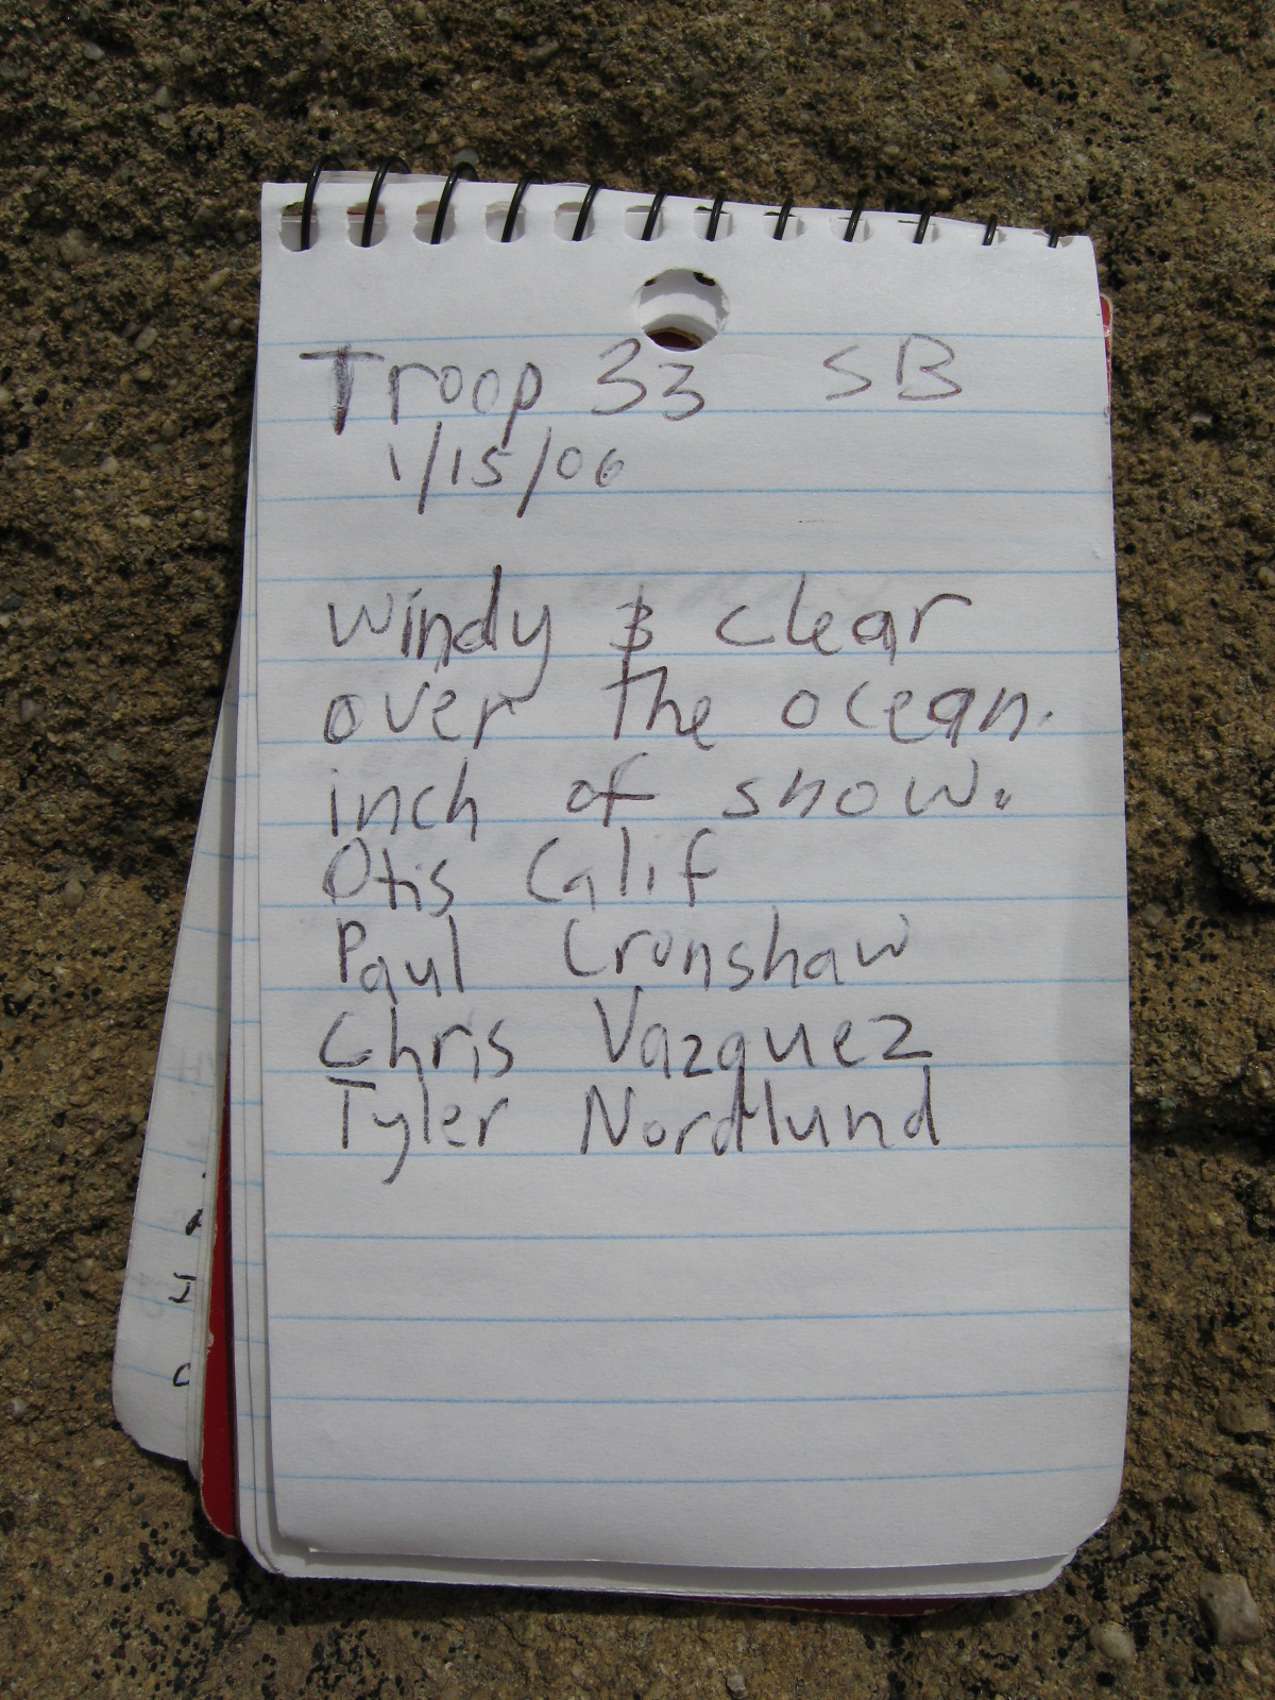 Troop 33 SB
1/15/06
windy & clear
over the ocean.
inch of snow.
Otis Calif
Paul Cronshaw
Chris Vazquez
Tyler Nordlund